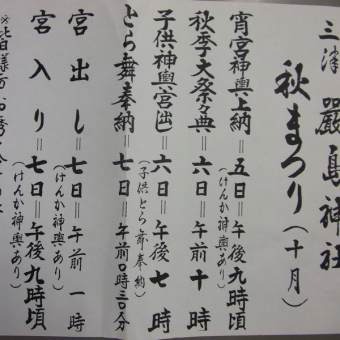 三津 嚴島神社
秋まつり(十月)
宵宮神輿上納=五日=午後九時頃
(けんか神輿あり)
秋季大祭典=六日=午前十時
子供神輿宮出=六日午後七時
(子供とら舞奉納)
とら舞奉納=七日=午前0時三〇分
宮出し=七日=午前一時
(けんか神輿あり)
宮入り=七日=午後九時頃
(けんか神輿あり)